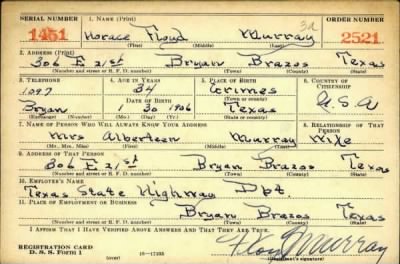 SERIAL NUMBER 1. NAME (Print) ORDER NUMBER
1451 Horace Floyd Murray 2521
(First) (Middle) (Last)
2. ADDRESS (Print)
306 E 21st Bryan Brazos Texas
(Number and street or R. F. D. number) (Town) (County) (State)
3. TELEPHONE 4. AGE IN YEARS 5. PLACE OF BIRTH 6. COUNTRY OF CITIZENSHIP
1097 34 Grimes
DATE OF BIRTH (Town or county)
Bryan 1 30 1906 Texas U.S.A
(Exchange) (Number) (Mo.) (Day) (Yr.) (State or country)
7. NAME OF PERSON WHO WILL ALWAYS KNOW YOUR ADDRESS 8. RELATIONSHIP OF THAT PERSON
Mrs Alberteen Murray Wife
(Mr., Mrs., Miss) (First) (Middle) (Last)
9. ADDRESS OF THAT PERSON
306 E 21st Bryan Brazos Texas
(Number and street or R. F. D. number) (Town) (County) (State)
10. EMPLOYER'S NAME
Texas State Highway Dpt.
11. PLACE OF EMPLOYMENT OR BUSINESS
Bryan Brazos Texas
(Number and street or R. F. D. number) (Town) (County) (State)
I AFFIRM THAT I HAVE VERIFIED ABOVE ANSWERS AND THAT THEY ARE TRUE.
REGISTRATION CARD
D. S. S. Form 1 (over) Floyd Murray
(Registrant's signature)